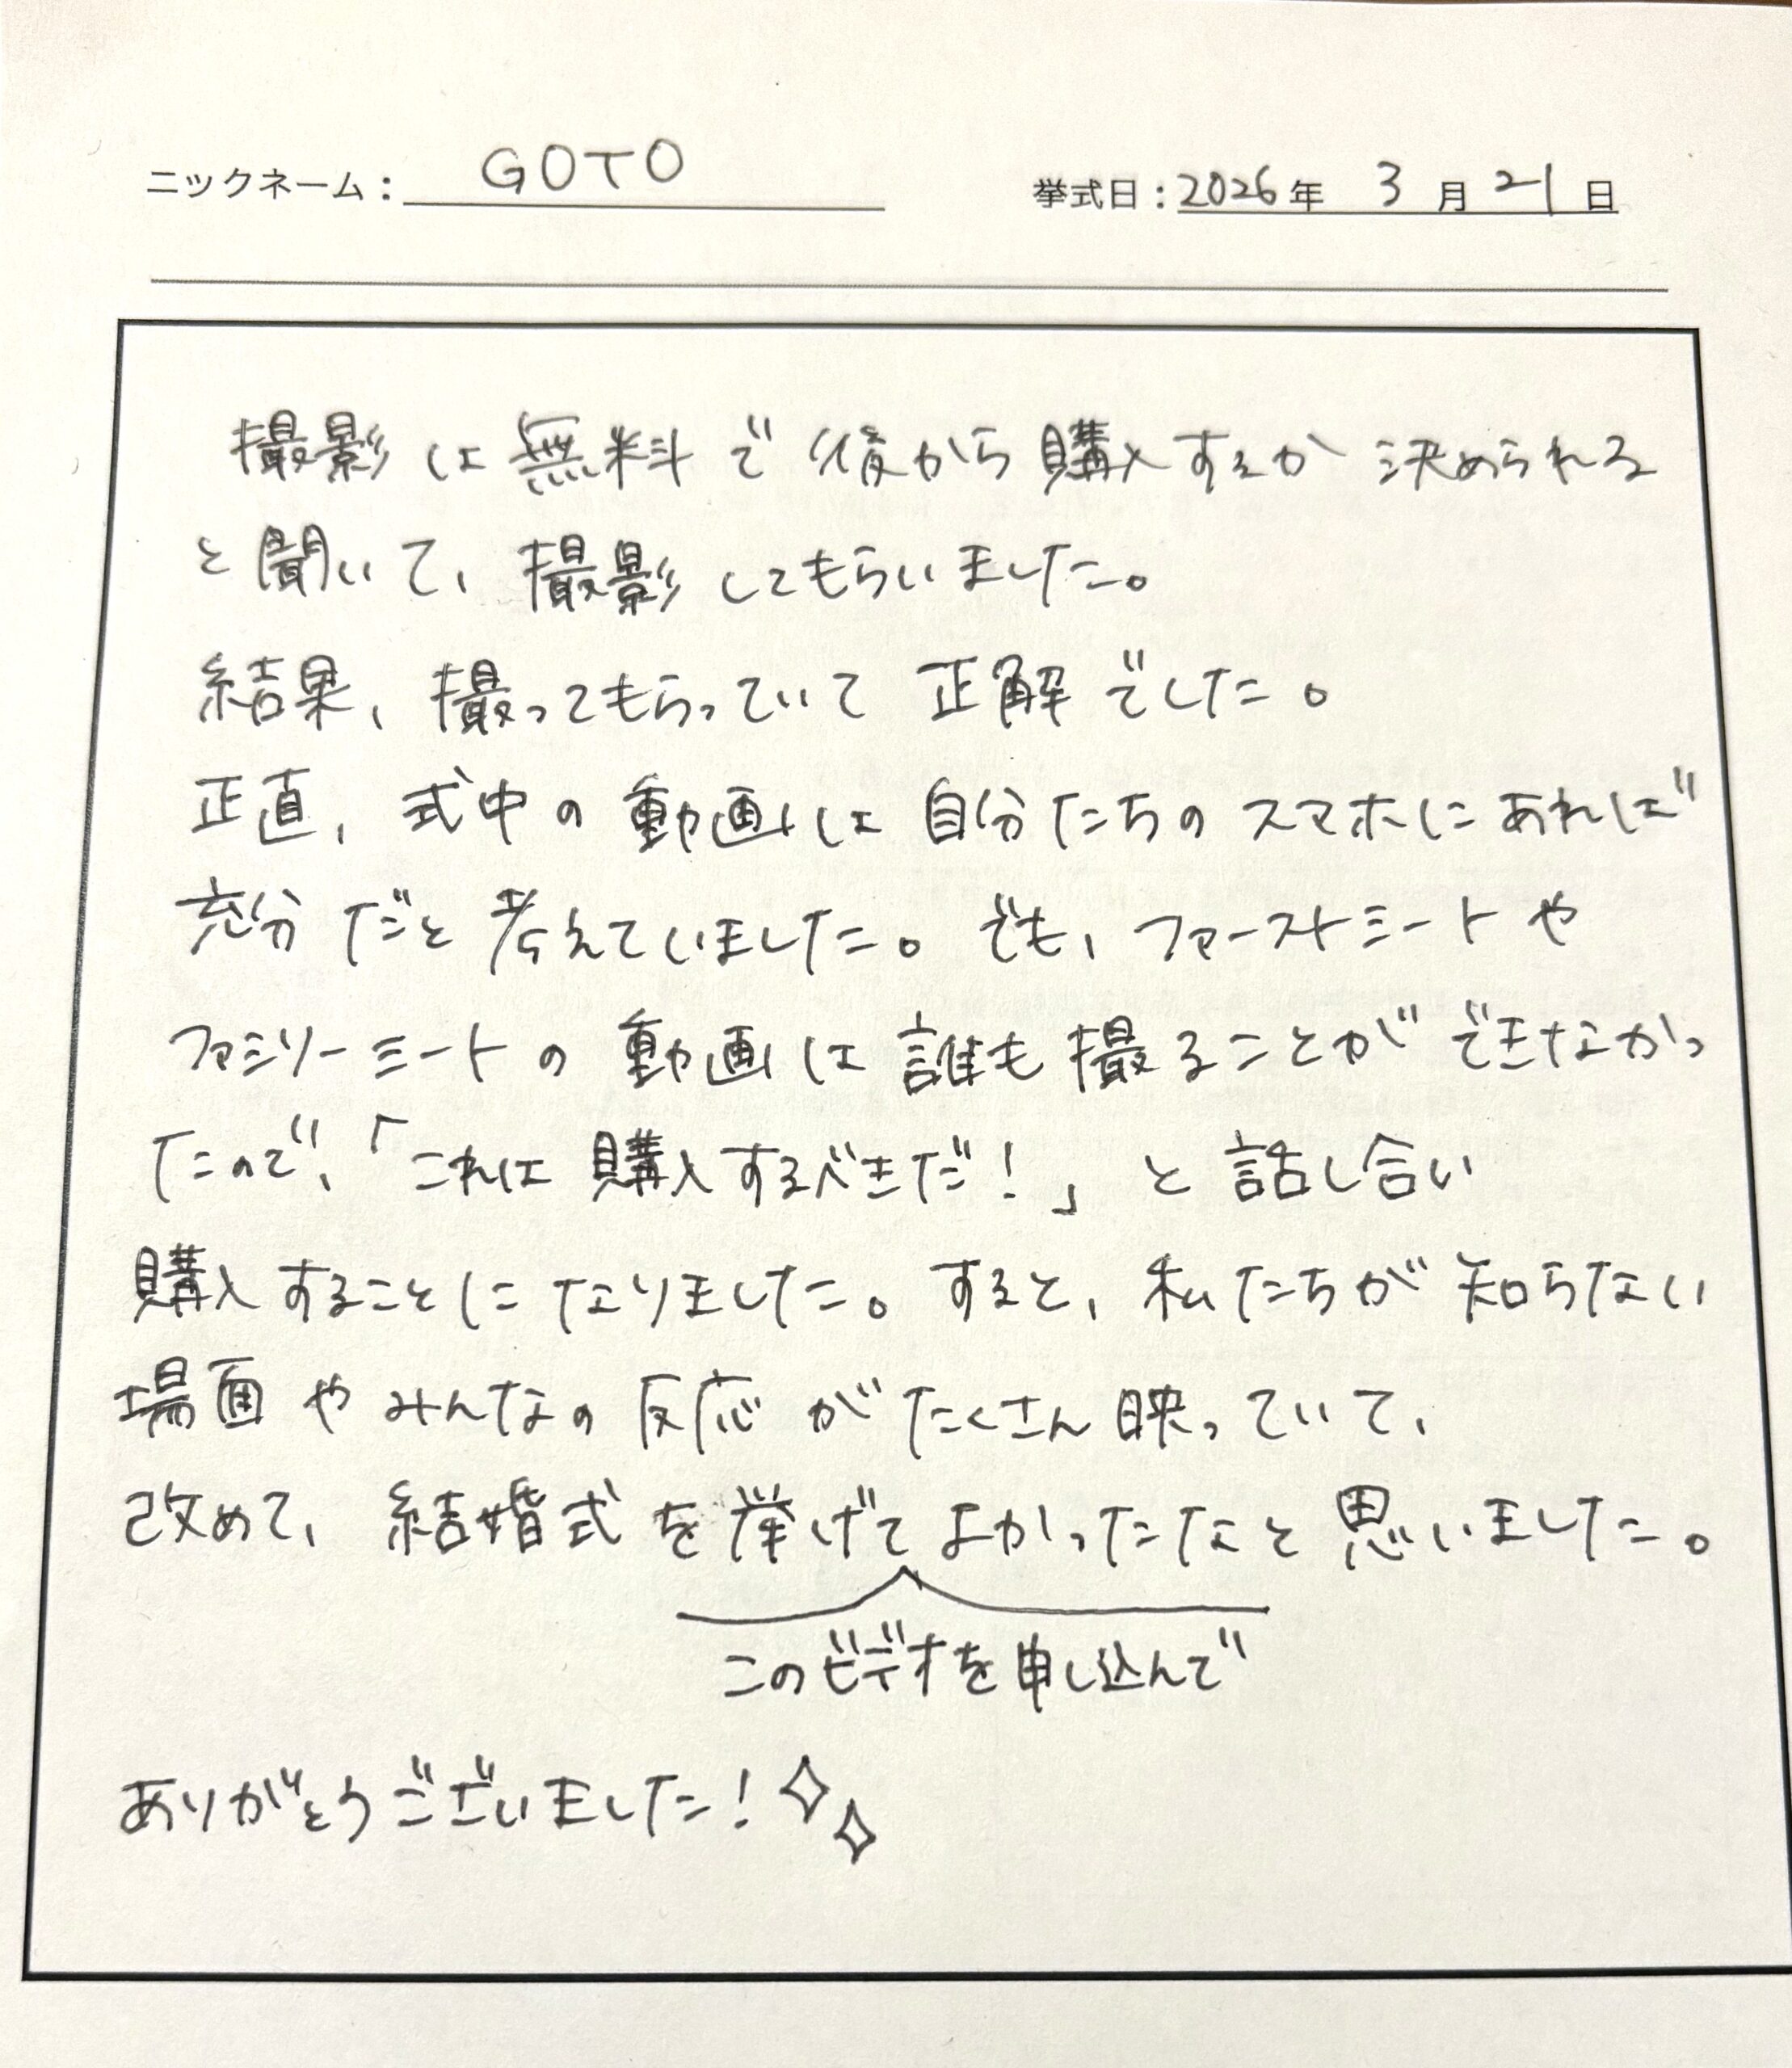 ニックネーム: GOTO 挙式日:2026年 3月 21日
撮影は無料で後から購入するか決められる
と聞いて、撮影してもらいました。
結果、撮ってもらっていて正解でした。
正直、式中の動画は自分たちのスマホにあれば
充分だと考えていました。でも、ファーストミートや
ファミリーミートの動画は誰も撮ることができなかっ
たので、「これは購入するべきだ!」と話し合い
購入することになりました。すると、私たちが知らない
場面やみんなの反応がたくさん映っていて、
改めて、結婚式を挙げてよかったなと思いました。
このビデオを申し込んで
ありがとうございました!